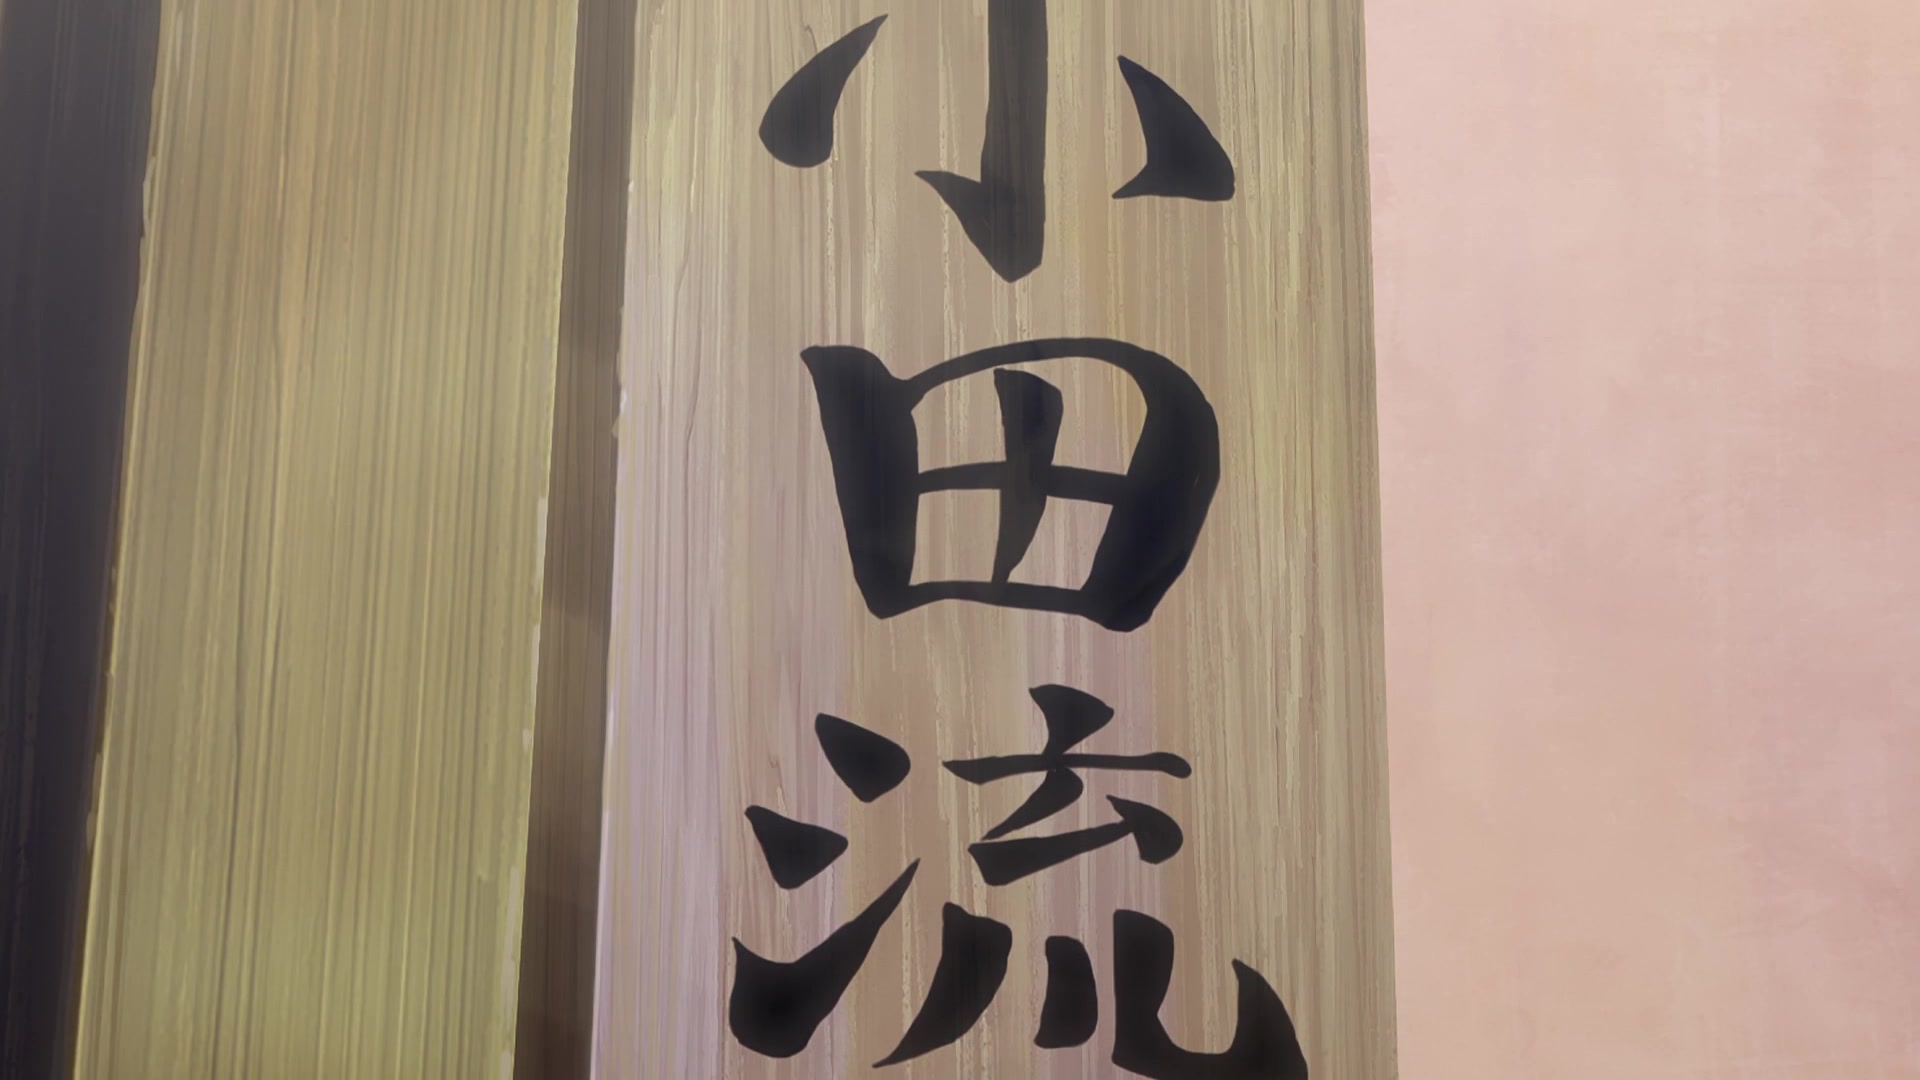 小田流